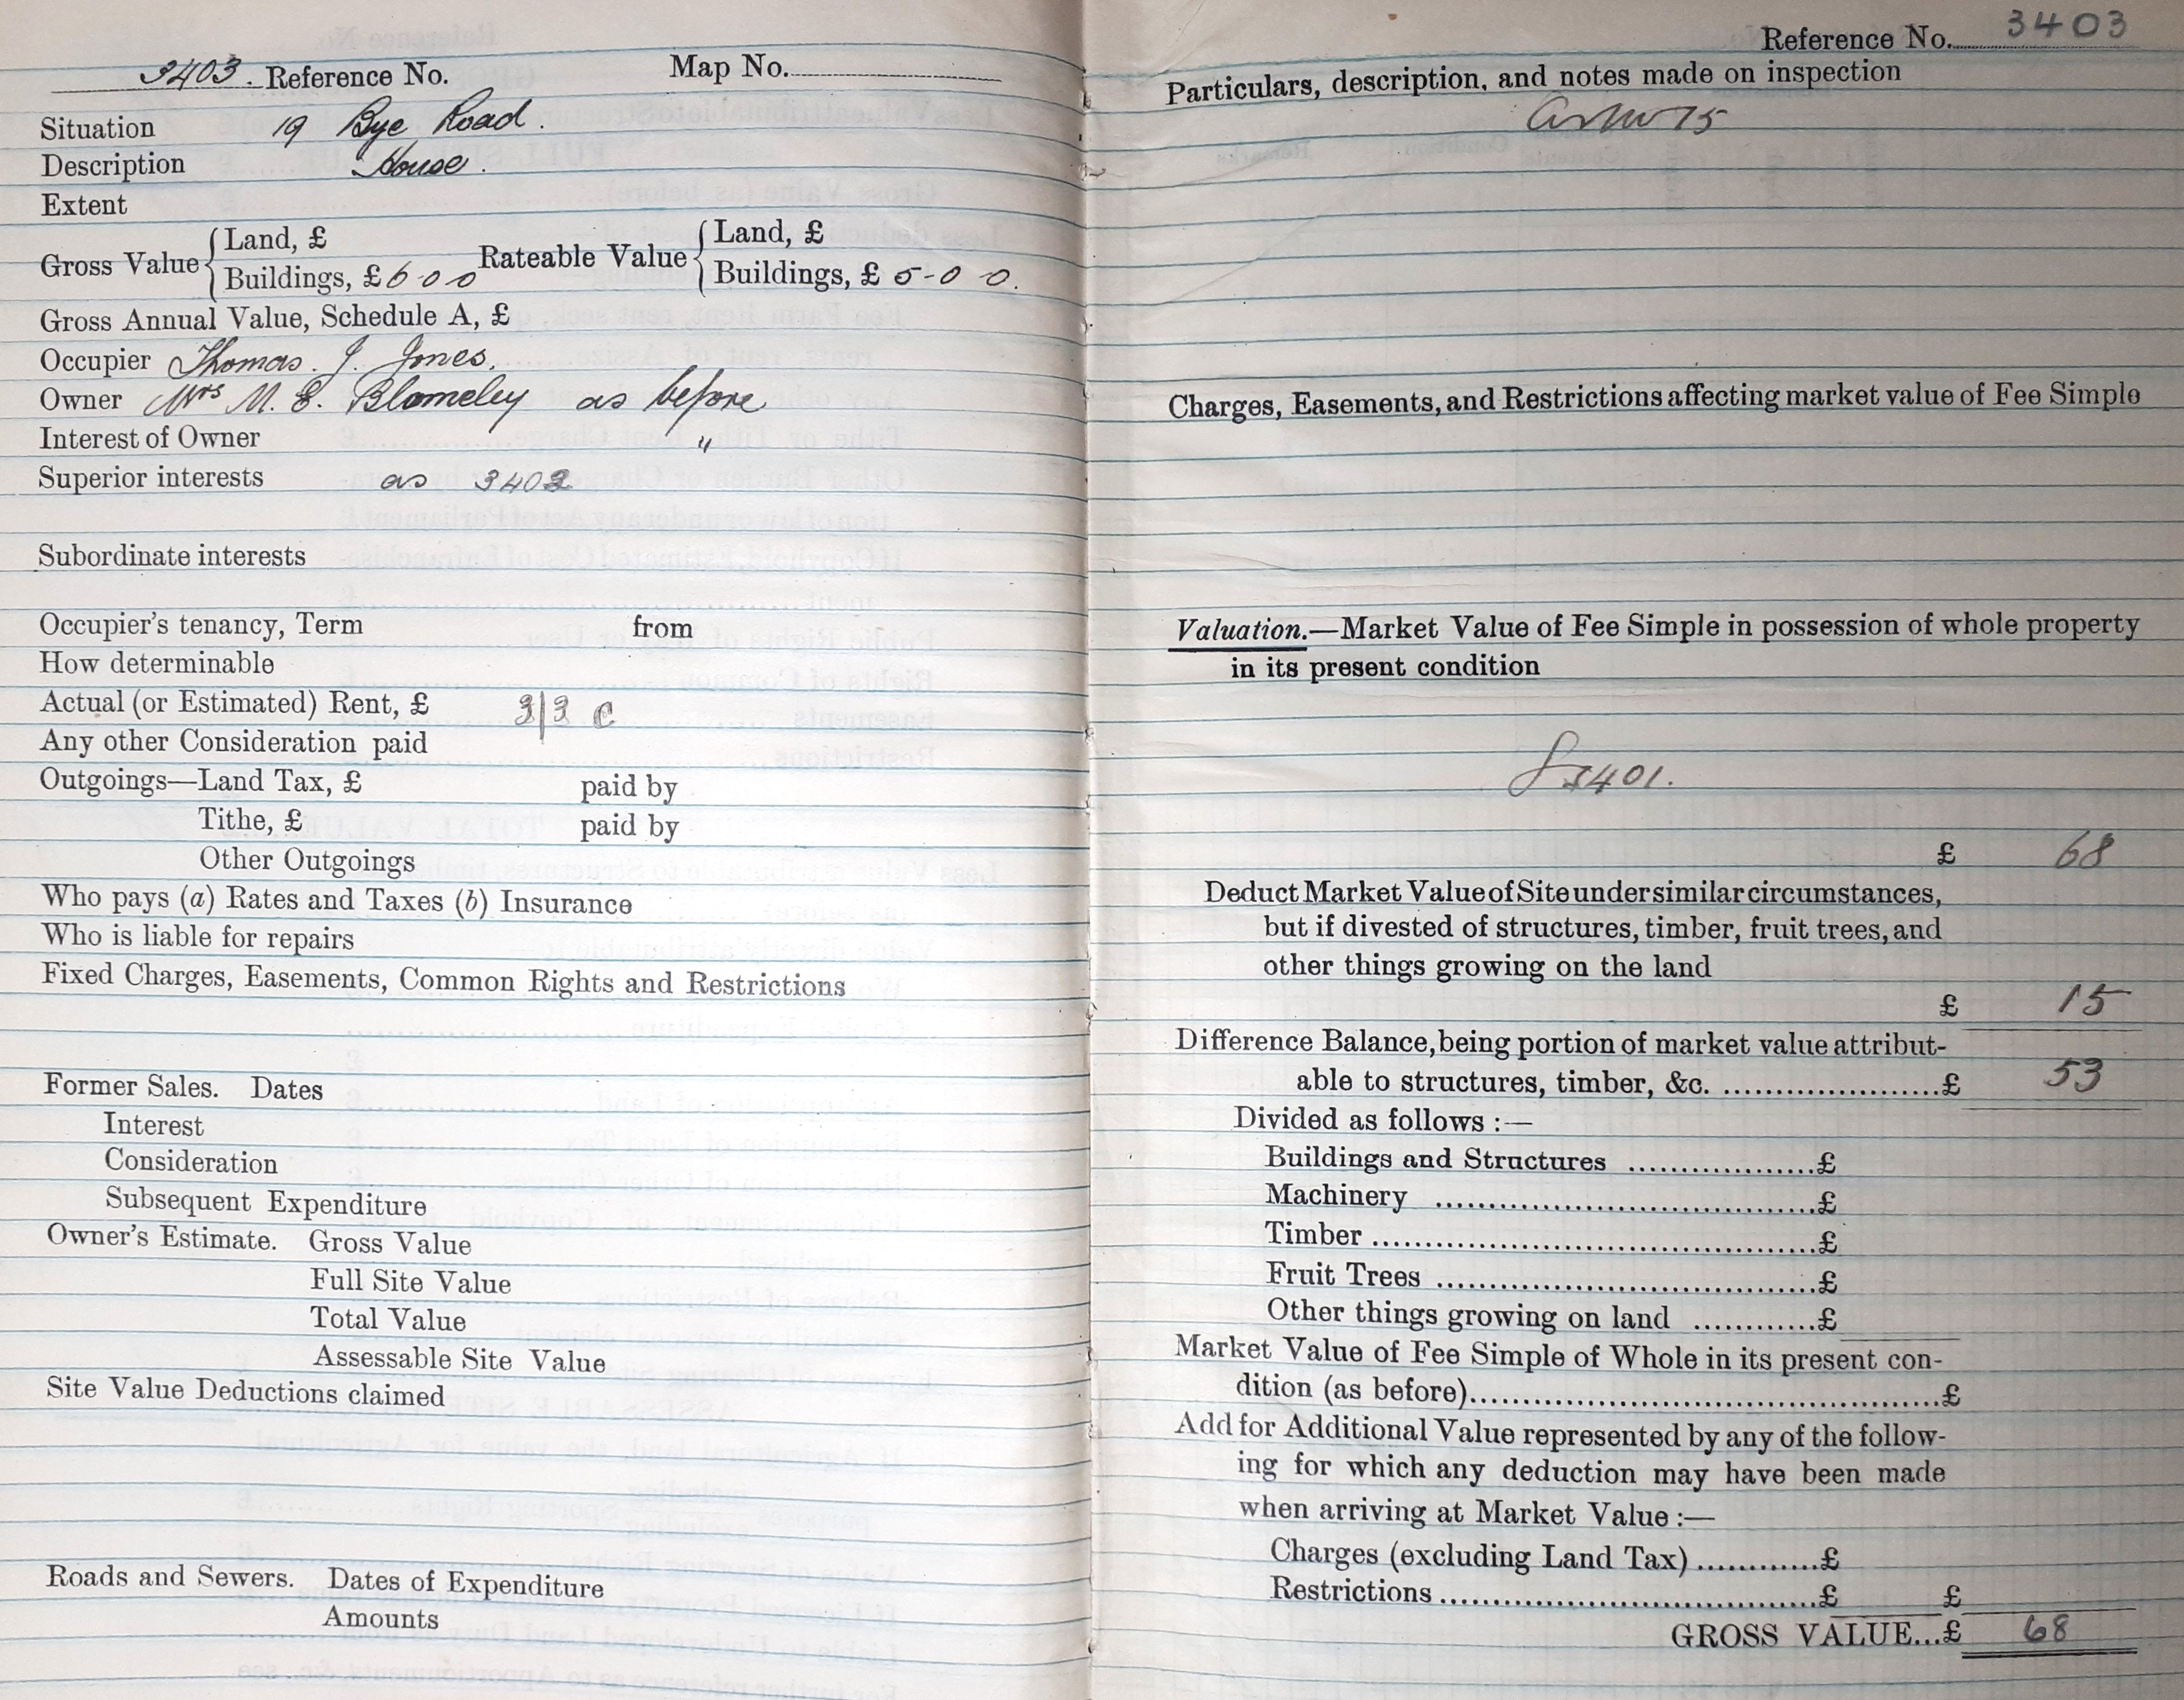 3403. Reference No. Map No.
Situation 19 Bye Road.
Description House.
Extent
Gross Value { Land, £
Buildings, £ 6-0-0
Rateable Value { Land, £
Buildings, £ 5-0-0.
Gross Annual Value, Schedule A, £
Occupier Thomas. J. Jones.
Owner Mrs M. E. Blomeley as before
Interest of Owner "
Superior interests as 3402
Subordinate interests
Occupier's tenancy, Term from
How determinable
Actual (or Estimated) Rent, £ 3/3 C
Any other Consideration paid
Outgoings—Land Tax, £ paid by
Tithe, £ paid by
Other Outgoings
Who pays (a) Rates and Taxes (b) Insurance
Who is liable for repairs
Fixed Charges, Easements, Common Rights and Restrictions
Former Sales. Dates
Interest
Consideration
Subsequent Expenditure
Owner's Estimate. Gross Value
Full Site Value
Total Value
Assessable Site Value
Site Value Deductions claimed
Roads and Sewers. Dates of Expenditure
Amounts
Reference No. 3403
Particulars, description, and notes made on inspection
15
Charges, Easements, and Restrictions affecting market value of Fee Simple
Valuation.—Market Value of Fee Simple in possession of whole property
in its present condition
3401.
£ 68
Deduct Market Value of Site under similar circumstances,
but if divested of structures, timber, fruit trees, and
other things growing on the land
£ 15
Difference Balance, being portion of market value attribut-
able to structures, timber, &c. ....................£ 53
Divided as follows :—
Buildings and Structures .................£
Machinery ...................................£
Timber .........................................£
Fruit Trees ...................................£
Other things growing on land ...........£
Market Value of Fee Simple of Whole in its present con-
dition (as before)..........................................£
Add for Additional Value represented by any of the follow-
ing for which any deduction may have been made
when arriving at Market Value :—
Charges (excluding Land Tax) ...........£
Restrictions ...................................£ £
GROSS VALUE...£ 68